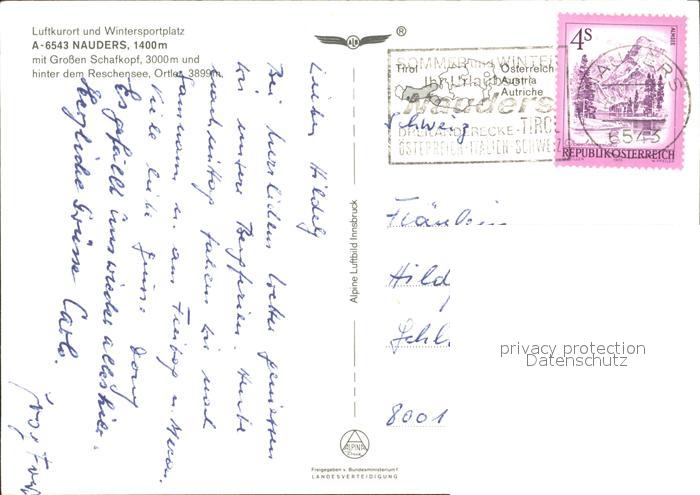 Luftkurort und Wintersportplatz
A-6543 NAUDERS, 1400m
mit Großen Schafkopf, 3000m und
hinter dem Reschensee, Ortler 3899m
®
Tirol
Österreich
Austria
Autriche
SOMMER und WINTER
Ihr Urlaub
Nauders
DREILÄNDERECKE-TIROL
ÖSTERREICH-ITALIEN-SCHWEIZ
4S
ALMSEE
REPUBLIK ÖSTERREICH
NAUDERS
6543
Schweiz
Fräulein
Hild
8001
privacy protection
Datenschutz
Alpine Luftbild Innsbruck
ALPINA
Druck
Freigegeben v. Bundesministerium f.
LANDESVERTEIDIGUNG
Bei herrlichem Wetter geniessen
wir unsere Bergferien. Heute
nachmittag fahren wir nach
u. am Freitag n.
Viele liebe Grüsse
Es gefällt uns wieder alles hier.
Herzliche Grüsse Carlo.